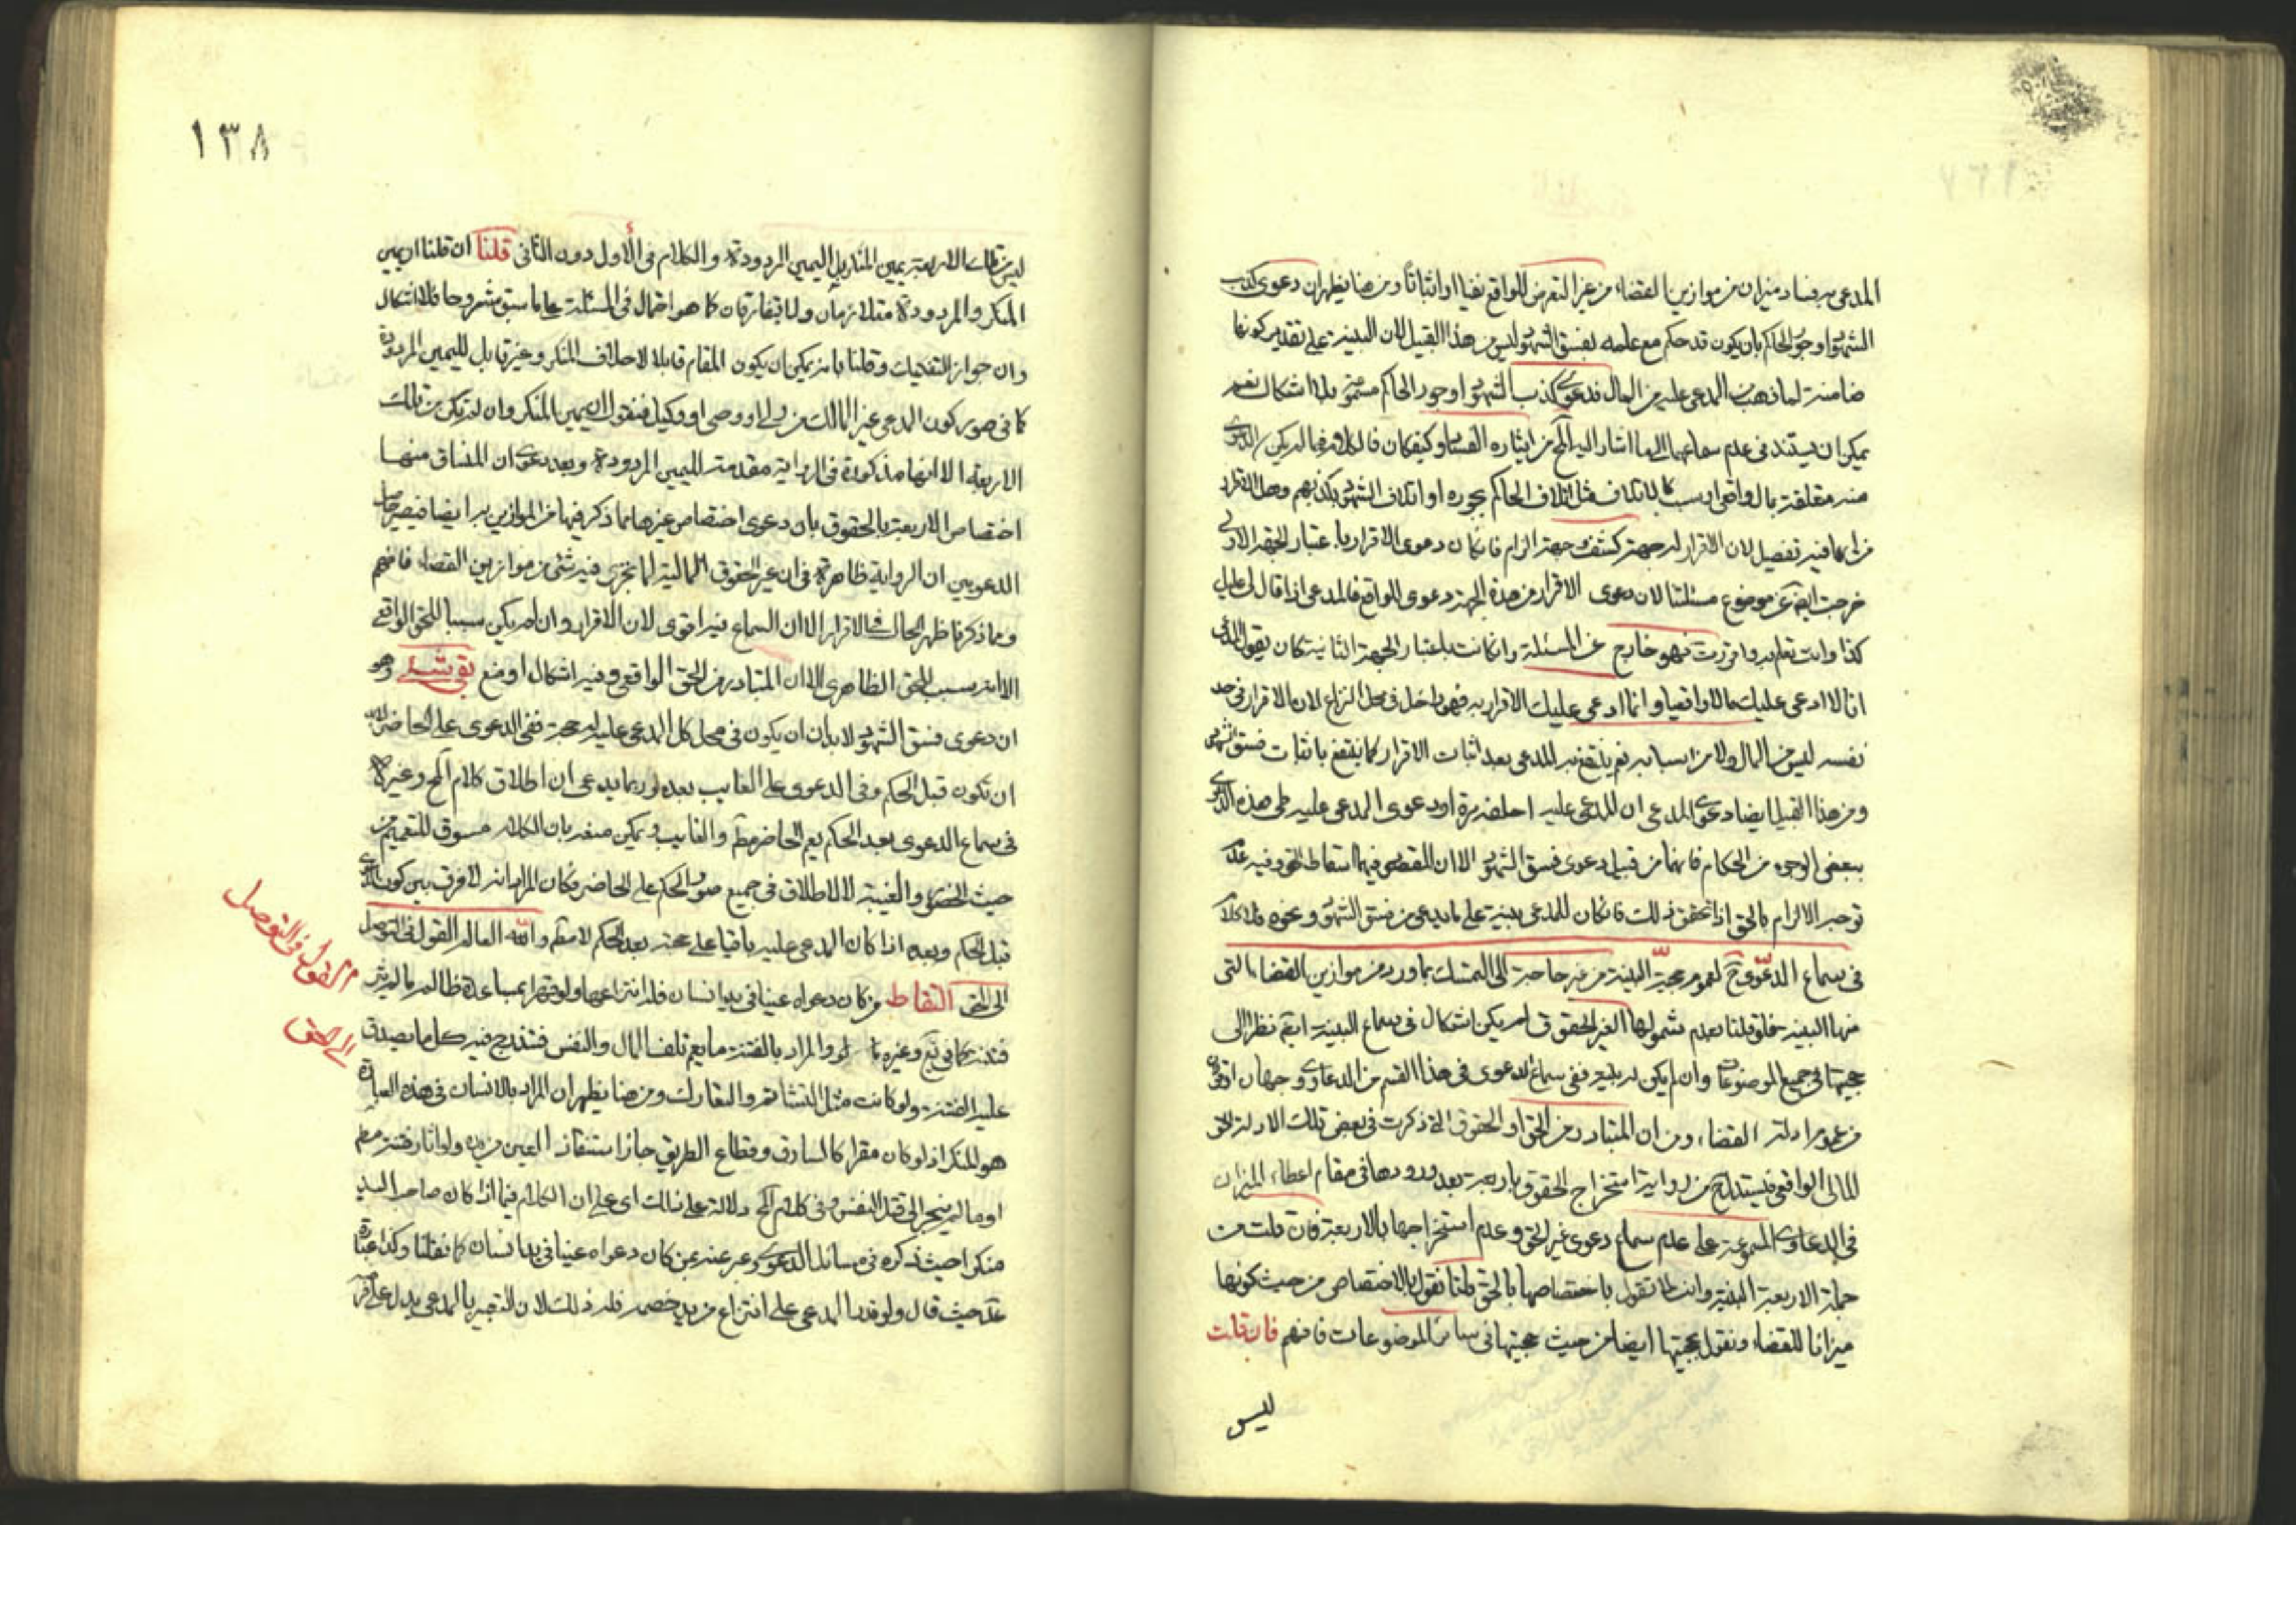 المدعى به فساد ميزان من موازين القضاء من غير التعرض للواقع نفيا او اثباتا ومن هنا يظهر ان دعوى كذب
الشهود او جور الحاكم بان يكون قد حكم مع علمه بفسق الشهود ليس من هذا القبيل لان البينة على تقدير كونها
ضامنة لما ذهب من المدعى عليه من المال فدعوى كذب الشهود او جور الحاكم مسموعة بلا اشكال نعم
يمكن ان يستند في عدم سماعهما الى ما اشار اليه المح من اثارة الفساد وكيفكان فالكلام فيما لم يكن الدعوى
منه متعلقة بمال واقعى او بسبب كالاتلاف مثل اتلاف الحاكم بجوره او اتلاف الشهود بكذبهم وهل الاقرار
من ايهما فيه تفصيل لان الاقرار له جهة كشف وجهة الزام فان كان دعوى الاقرار باعتبار الجهة الاولى
خرجت ايضا عن موضوع مسئلتنا لان دعوى الاقرار من هذه الجهة دعوى للواقع فالمدعى اذا قال لى عليك
كذا وانت تعلم به واقررت فهو خارج عن المسئلة وان كانت باعتبار الجهة الثانية كان يقول المدعى
انا لا ادعى عليك مالا واقعيا وانما ادعى عليك الاقرار به فهو داخل في محل النزاع لان الاقرار في حد
نفسه ليس من المال ولا من اسبابه نعم ينتفع به المدعى بعد اثبات الاقرار كما ينتفع باثبات فسق الشهود
ومن هذا القبيل ايضا دعوى المدعى ان المدعى عليه احلفه مرة او دعوى المدعى عليه طى هذه الدعوى
ببعض الوجوه من الحكام فانهما من قبيل دعوى فسق الشهود الا ان المقصود فيهما اسقاط الحق وفيه عدم
توجه الالزام بالحق اذا تحقق ذلك فان كان للمدعى بينة على ما يدعى من فسق الشهود ونحوه فلا كلام
في سماع الدعوى ح لعموم حجية البينة من غير حاجة الى التمسك بما ورد من موازين القضاء التى
منها البينة فلو قلنا بعدم شمولها لغير الحقوق لم يكن اشكال في سماع البينة ايضا نظرا الى
حجيتها في جميع الموضوعات وان لم يكن له بينة ففى سماع الدعوى في هذا القسم من الدعاوى وجهان اقويهما
من عموم ادلة القضاء ومن ان المتبادر من الحق او الحقوق التى ذكرت في بعض تلك الادلة الحق
المالى الواقعى فيستدل من رواية استخراج الحقوق باربعة بعد ورودها في مقام اعطاء الميزان
في الدعاوى المسموعة على عدم سماع دعوى غير الحق وعدم استخراجها بالاربعة فان قلت من
جملة الاربعة البينة وانت لا تقول باختصاصها بالحق قلنا نقول بالاختصاص من حيث كونها
ميزانا للقضاء ونقول بحجيتها ايضا من حيث حجيتها في سائر الموضوعات فافهم فان قلت
ليس
١٣٨
ليس من تلك الاربعة يمين المنكر بل اليمين المردودة والكلام في الاول دون الثانى قلنا ان قلنا ان يمين
المنكر والمردودة متلازمان ولا يتفارقان كما هو احتمال في المسئلة على ما سبق مشروحا فلا اشكال
وان جواز التفكيك وقلنا بانه يمكن ان يكون المقام قابلا لاحلاف المنكر وغير قابل لليمين المردودة
كما في صور كون المدعى غير المالك من ولى او وصى او وكيل فنقول ان يمين المنكر وان لم يكن من تلك
الاربعة الا انها مذكورة في الرواية مقدمة لليمين المردودة وبعد دعوى ان المنساق منها
اختصاص الاربعة بالحقوق بان دعوى اختصاص غيرها مما ذكر فيها من الموازين به ايضا فيصير حاصل
الدعويين ان الرواية ظاهرة في ان غير الحقوق المالية لا يجرى فيه شئ من موازين القضاء فافهم
ومما ذكرنا ظهر الحال في الاقرار الا ان السماع فيه اقوى لان الاقرار وان لم يكن سببا للحق الواقعى
الا انه سبب للحق الظاهرى الا ان المتبادر من الحق الواقعى وفيه اشكال او منع بقى شئ وهو
ان دعوى فسق الشهود لابد ان يكون في محل كل المدعى عليه له حجة ففى الدعوى على الحاضر لابد
ان تكون قبل الحكم وفى الدعوى على الغايب بعده او ربما يدعى ان اطلاق كلام المح وغيره
في سماع الدعوى بعد الحكم يعم الحاضر مط والغايب ويمكن منعه بان الكلام مسوق للتعميم من
حيث الحضور والغيبة لا الاطلاق في جميع صور الحكم على الحاضر فكان المراد انه لا فرق بين كون الدعوى
قبل الحكم وبعده اذا كان المدعى عليه باقيا على حجته بعد الحكم لا مط والله العالم القول في التوصل
الى الحق التقاط من كان دعواه عينا في يد انسان فله انتزاعها ولو قهرا بمساعدة ظالم ما لم يثر
فتنة كما في وغيره والمراد بالفتنة ما يعم تلف المال والنفس فتندرج فيه كل ما يصدق
عليه الفتنة ولو كانت مثل التشاتم والتعارك ومن هنا يظهر ان المراد بالانسان في هذه العبارة
هو المنكر اذ لو كان مقرا كالسارق وقطاع الطريق جاز استنقاذ العين من يده ولو اثار فتنة مط
او ما لم ينجر الى قتل النفس وفى كلام المح دلالة على ذلك اى على ان الكلام فيما اذا كان صاحب اليد
منكرا حيث ذكره في مسائل الدعوى وعبر عنه عن كان دعواه عينا في يد انسان كما نقلنا وكذا عبارة
عد حيث قال ولو قدر المدعى على انتزاع من يد خصمه فله ذلك لان التعبير بالمدعى يدل على
القول في التوصل
الى الحق